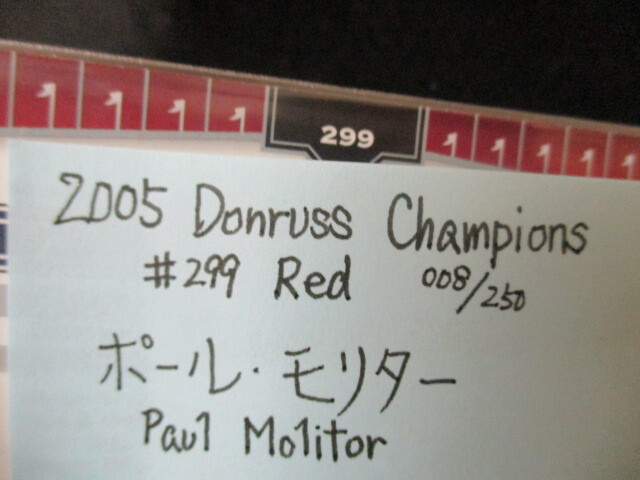 299
2005 Donruss Champions
#299 Red 008/250
ポール・モリター
Paul Molitor